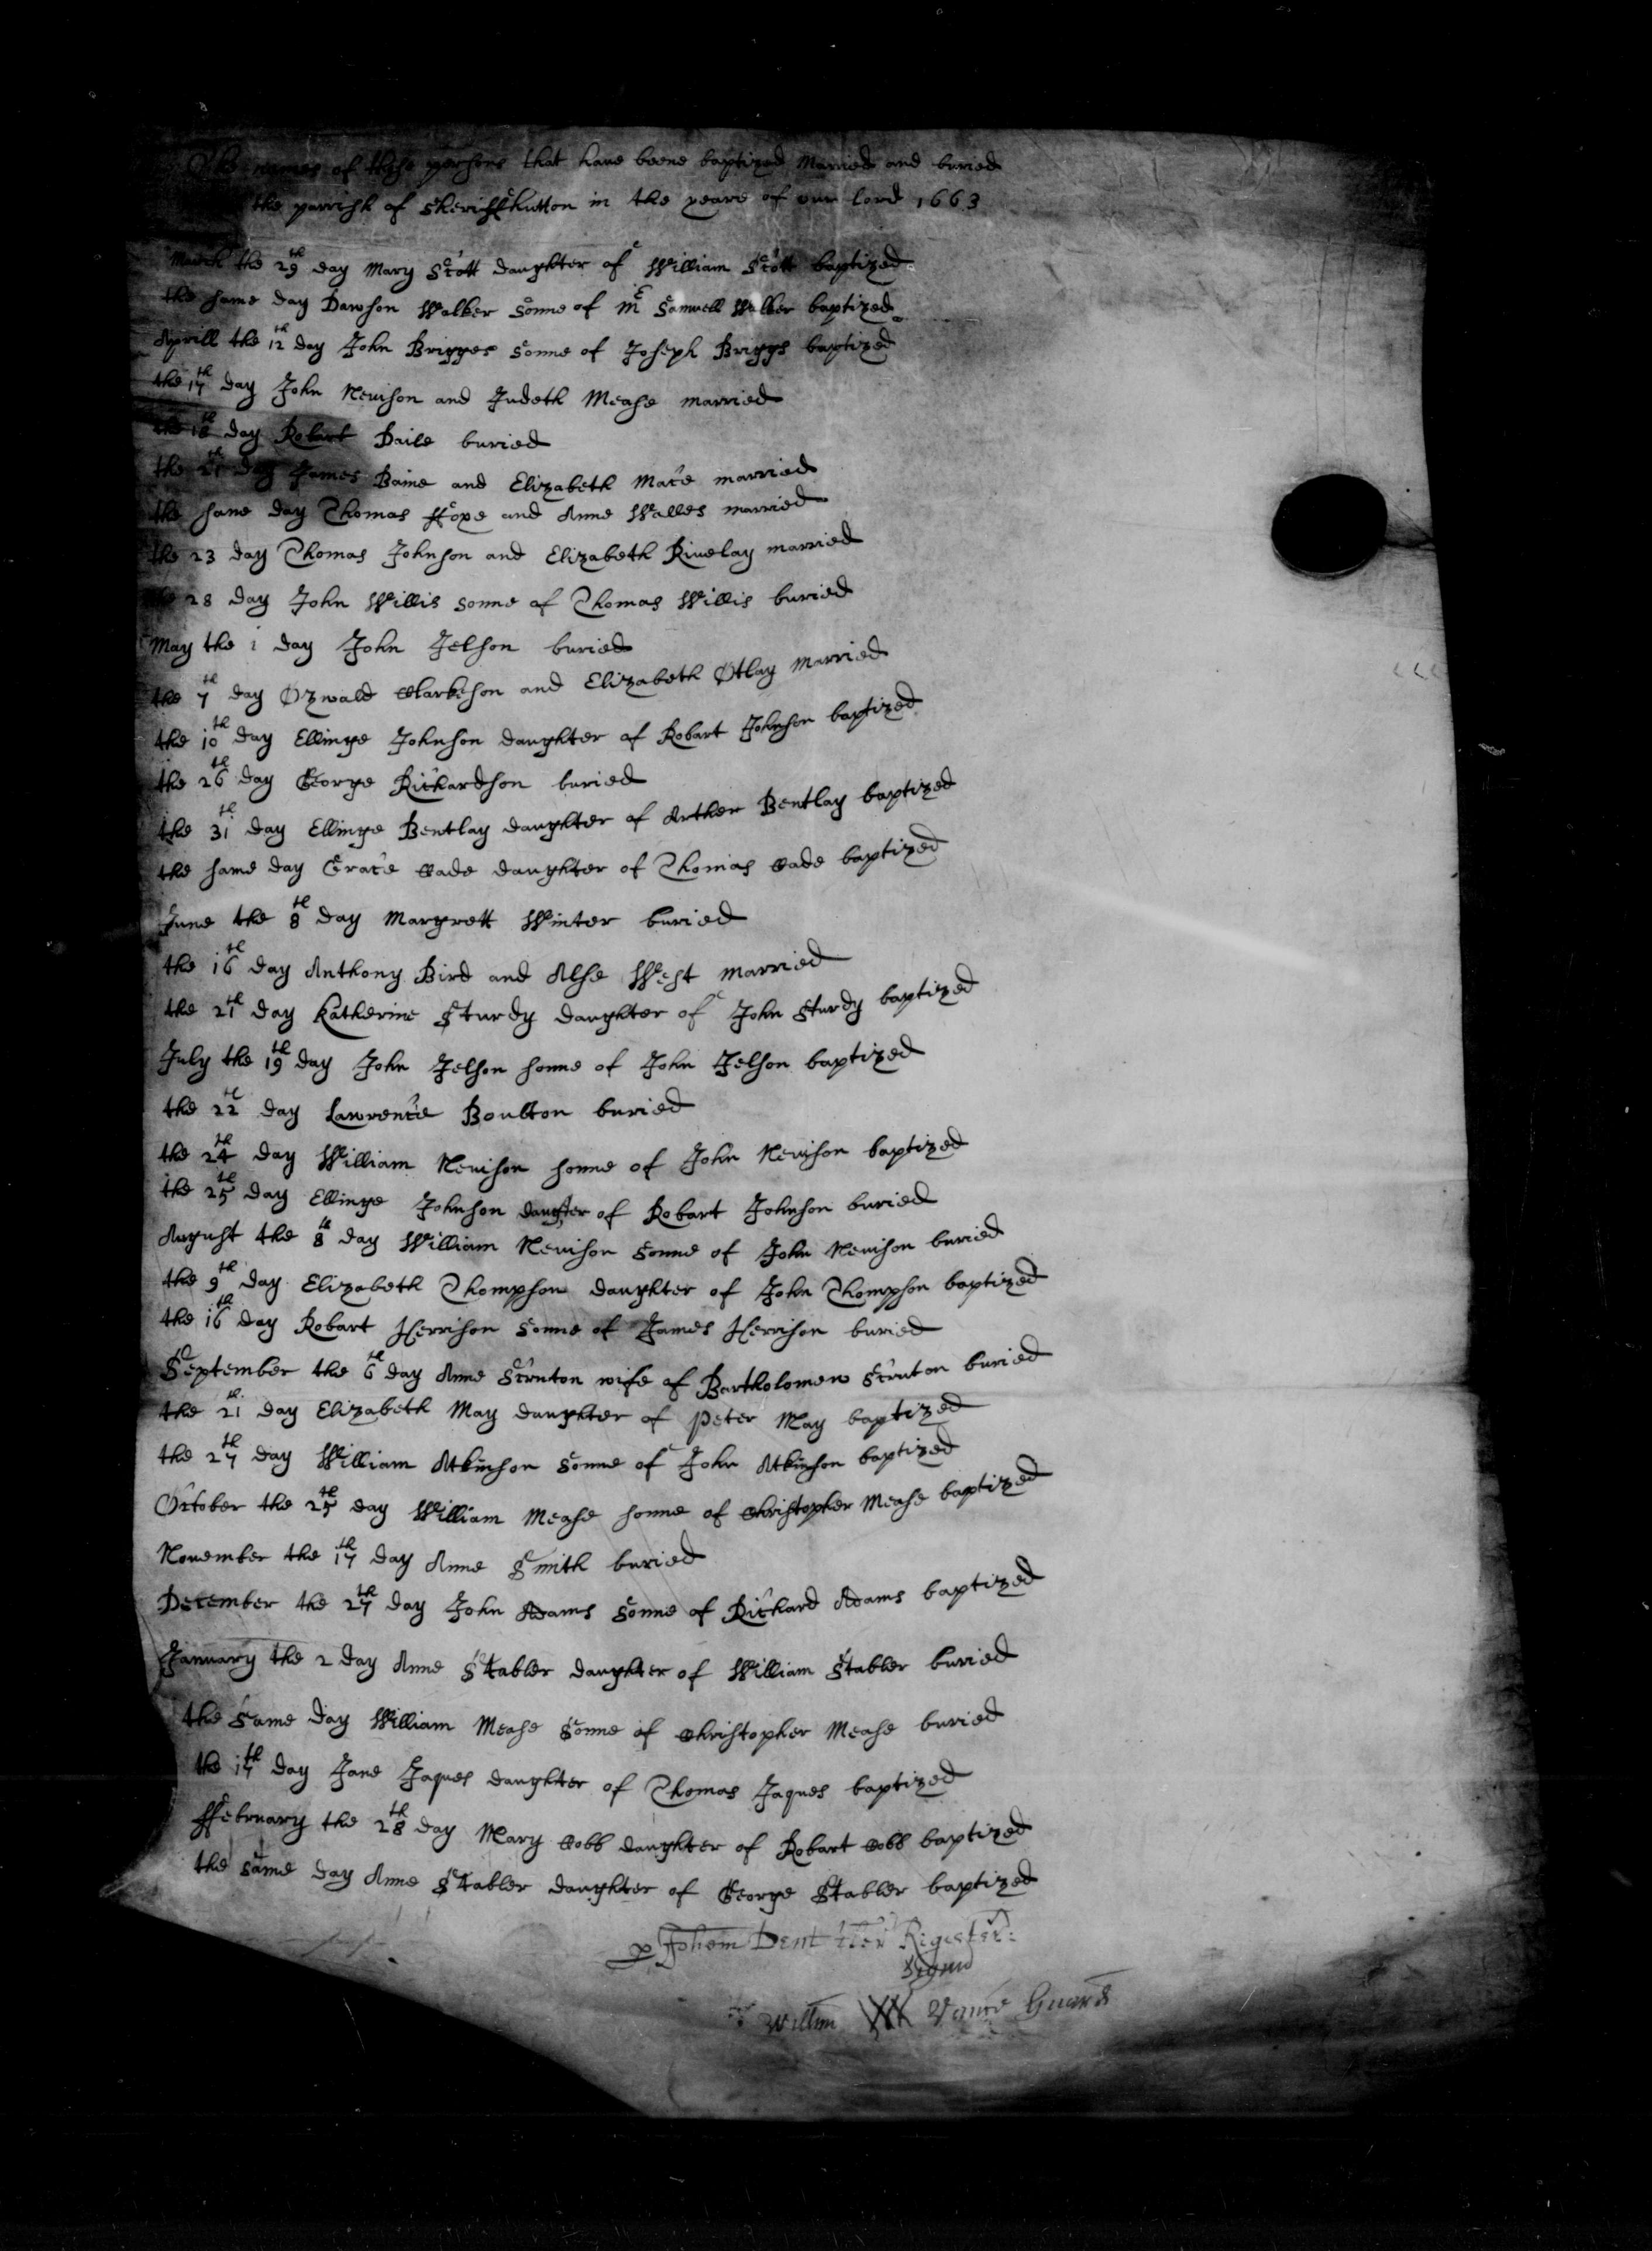 The names of these persons that have beene baptized Married and buried
the parrish of Sheriffhutton in the yeare of our lord 1663
March the 29th day Mary Scott daughter of William Scott baptized
the same day Dawson Walker Sonne of Mr Samuell Walker baptized
Aprill the 12th day John Brigges Sonne of Joseph Briggs baptized
the 17th day John Nevison and Judeth Mease married
the 18th day Robart Baile buried
the 21th day James Baine and Elizabeth Mace married
the same day Thomas Hope and Anne Walles married
the 23 day Thomas Johnson and Elizabeth Rivelay married
the 28 day John Willis sonne of Thomas Willis buried
May the 1 day John Jelson buried
the 7th day Ozwald Clarkson and Elizabeth Otlay married
the 10th day Ellinge Johnson daughter of Robart Johnson baptized
the 26th day George Richardson buried
the 31th day Ellinge Bentlay daughter of Arther Bentlay baptized
the same day Grace Cade daughter of Thomas Cade baptized
June the 8th day Margrett Winter buried
the 16th day Anthony Bird and Alse West married
the 21th day Katherine Sturdy daughter of John Sturdy baptized
July the 19th day John Jelson sonne of John Jelson baptized
the 22th day Lawrence Boulton buried
the 24th day William Nevison sonne of John Nevison baptized
the 25th day Ellinge Johnson daughter of Robart Johnson buried
August the 8th day William Nevison Sonne of John Nevison buried
the 9th day Elizabeth Thompson daughter of John Thompson baptized
the 16th day Robart Herrison Sonne of James Herrison buried
September the 6th day Anne Scruton wife of Bartholomew Scruton buried
the 21th day Elizabeth May daughter of Peter May baptized
the 27th day William Atkinson Sonne of John Atkinson baptized
October the 25th day William Mease sonne of Christopher Mease baptized
November the 17th day Anne Smith buried
December the 27th day John Adams Sonne of Richard Adams baptized
January the 2 day Anne Stabler daughter of William Stabler buried
the Same day William Mease Sonne of Christopher Mease buried
the 17th day Jane Jaques daughter of Thomas Jaques baptized
ffebruary the 28th day Mary Cobb daughter of Robart Cobb baptized
the same day Anne Stabler daughter of George Stabler baptized
p Johem Dent Register:
Signu
Willm Vance Guard